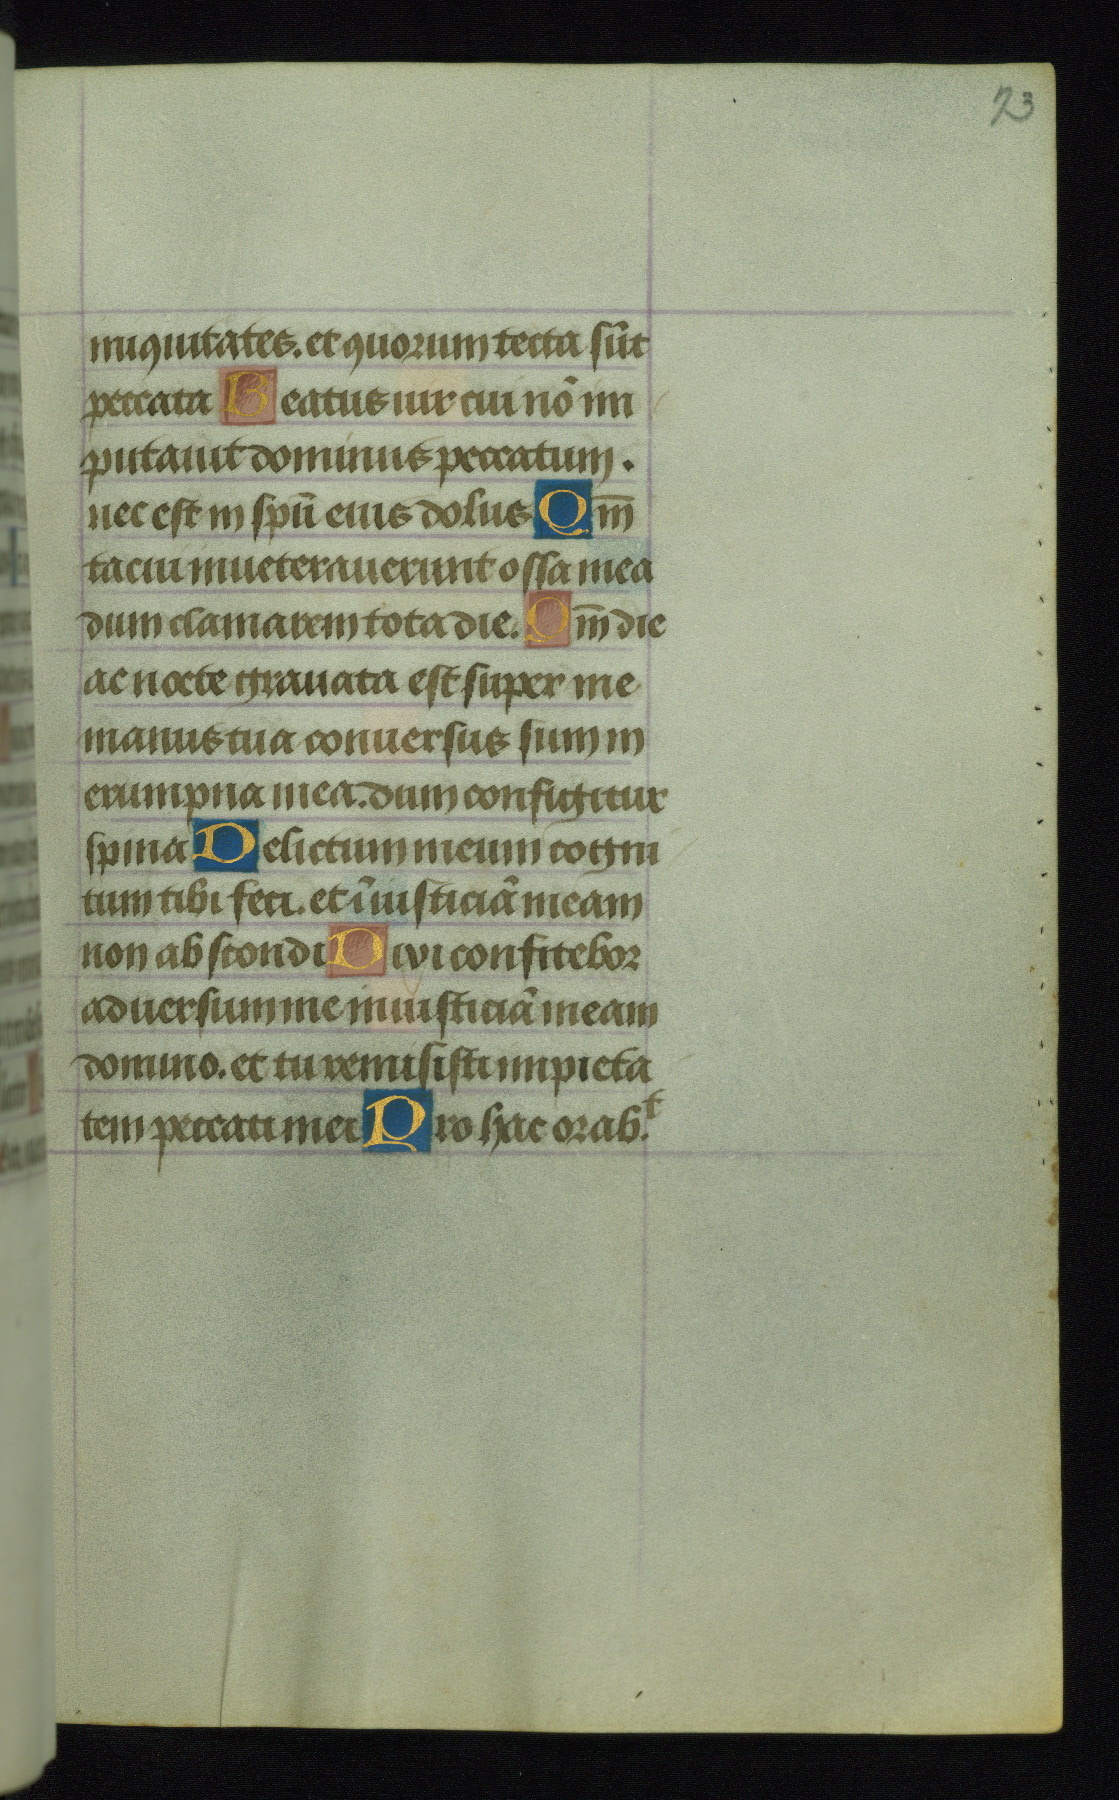 73
iniquitates. et quorum tecta sūt
peccata Beatus uir cui nō im
putauit dominus peccatum.
nec est in spū eius dolus Qm̄
tacui inueterauerunt ossa mea
dum clamarem tota die. Qm̄ die
ac nocte grauata est super me
manus tua conuersus sum in
erumpna mea. dum configitur
spina Delictum meum cogni
tum tibi feci. et iniusticiā meam
non abscondi Dixi confitebor
aduersum me iniusticiā meam
domino. et tu remisisti impieta
tem peccati mei Pro hac orab.t